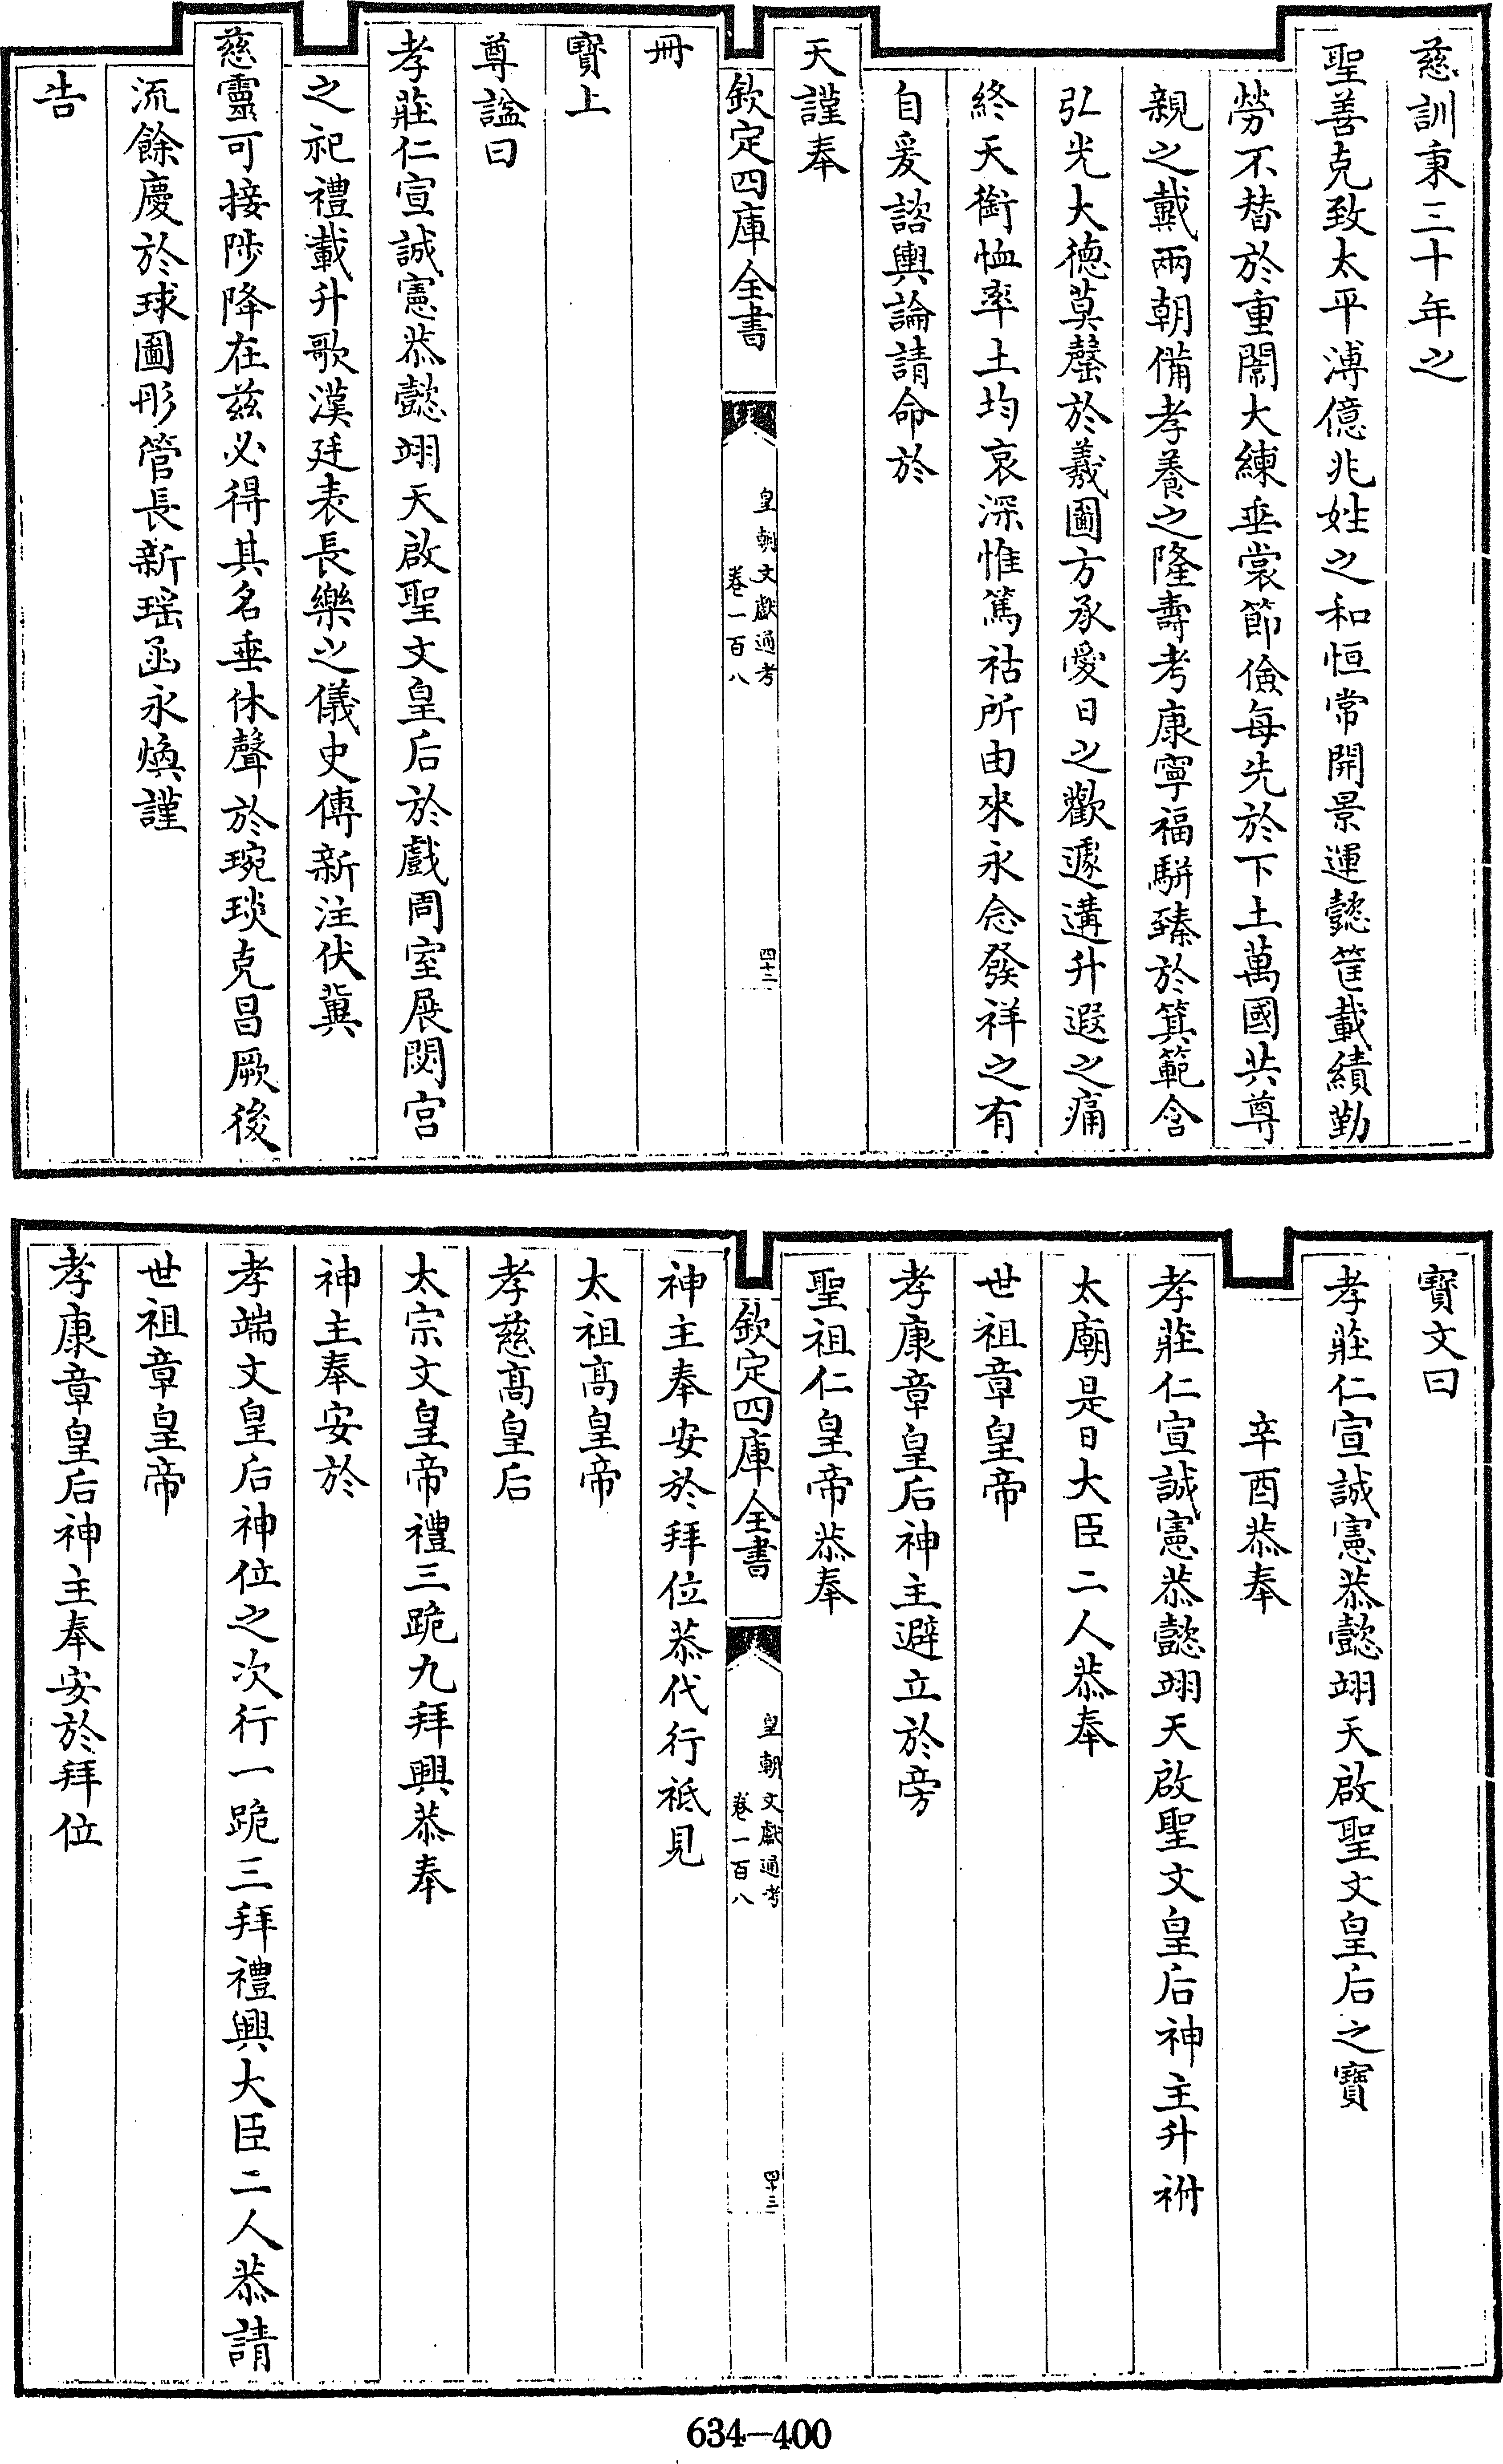 慈訓秉三十年之
聖善克致太平溥億兆姓之和恒常開景運懿筐載績勤
勞不替於重闈大練垂裳節儉每先於下土萬國共尊
親之戴兩朝備孝養之隆壽考康寧福駢臻於箕範含
弘光大德莫罄於羲圖方承愛日之歡遽遘升遐之痛
終天銜恤率土均哀深惟篤祜所由來永念發祥之有
自爰諮輿論請命於
天謹奉
欽定四庫全書
皇朝文獻通考
卷一百八
四十二
冊
寶上
尊諡曰
孝莊仁宣誠憲恭懿翊天啟聖文皇后於戲周室展閟宮
之祀禮載升歌漢廷表長樂之儀史傳新注伏冀
慈靈可接陟降在茲必得其名垂休聲於琬琰克昌厥後
流餘慶於球圖彤管長新瑤函永煥謹
告
寶文曰
孝莊仁宣誠憲恭懿翊天啟聖文皇后之寶
辛酉恭奉
孝莊仁宣誠憲恭懿翊天啟聖文皇后神主升祔
太廟是日大臣二人恭奉
世祖章皇帝
孝康章皇后神主避立於旁
聖祖仁皇帝恭奉
欽定四庫全書
皇朝文獻通考
卷一百八
四十三
神主奉安於拜位恭代行祗見
太祖高皇帝
孝慈高皇后
太宗文皇帝禮三跪九拜興恭奉
神主奉安於
孝端文皇后神位之次行一跪三拜禮興大臣二人恭請
世祖章皇帝
孝康章皇后神主奉安於拜位
634-400